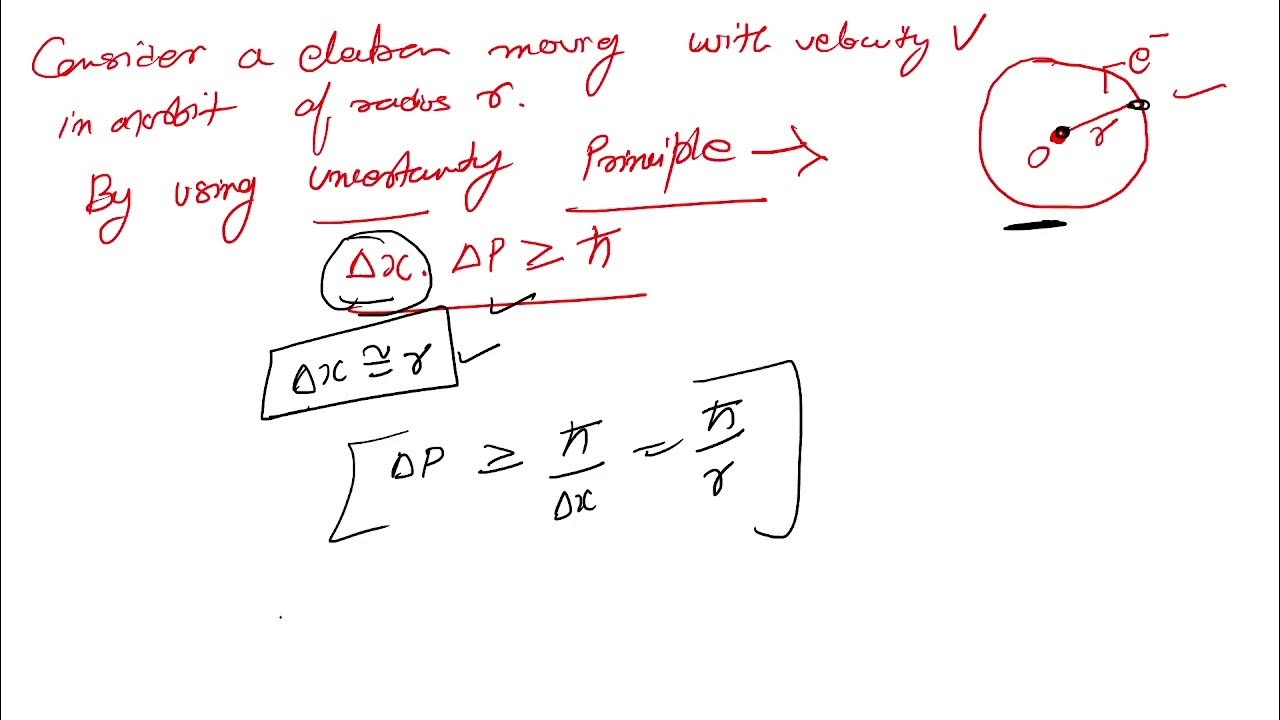 Consider a electron moving with velocity V
in an orbit of radius r.
e⁻
r
O
By using uncertainty Principle →
Δx. ΔP ≥ ħ
Δx ≅ r
ΔP ≥ ħ/Δx = ħ/r